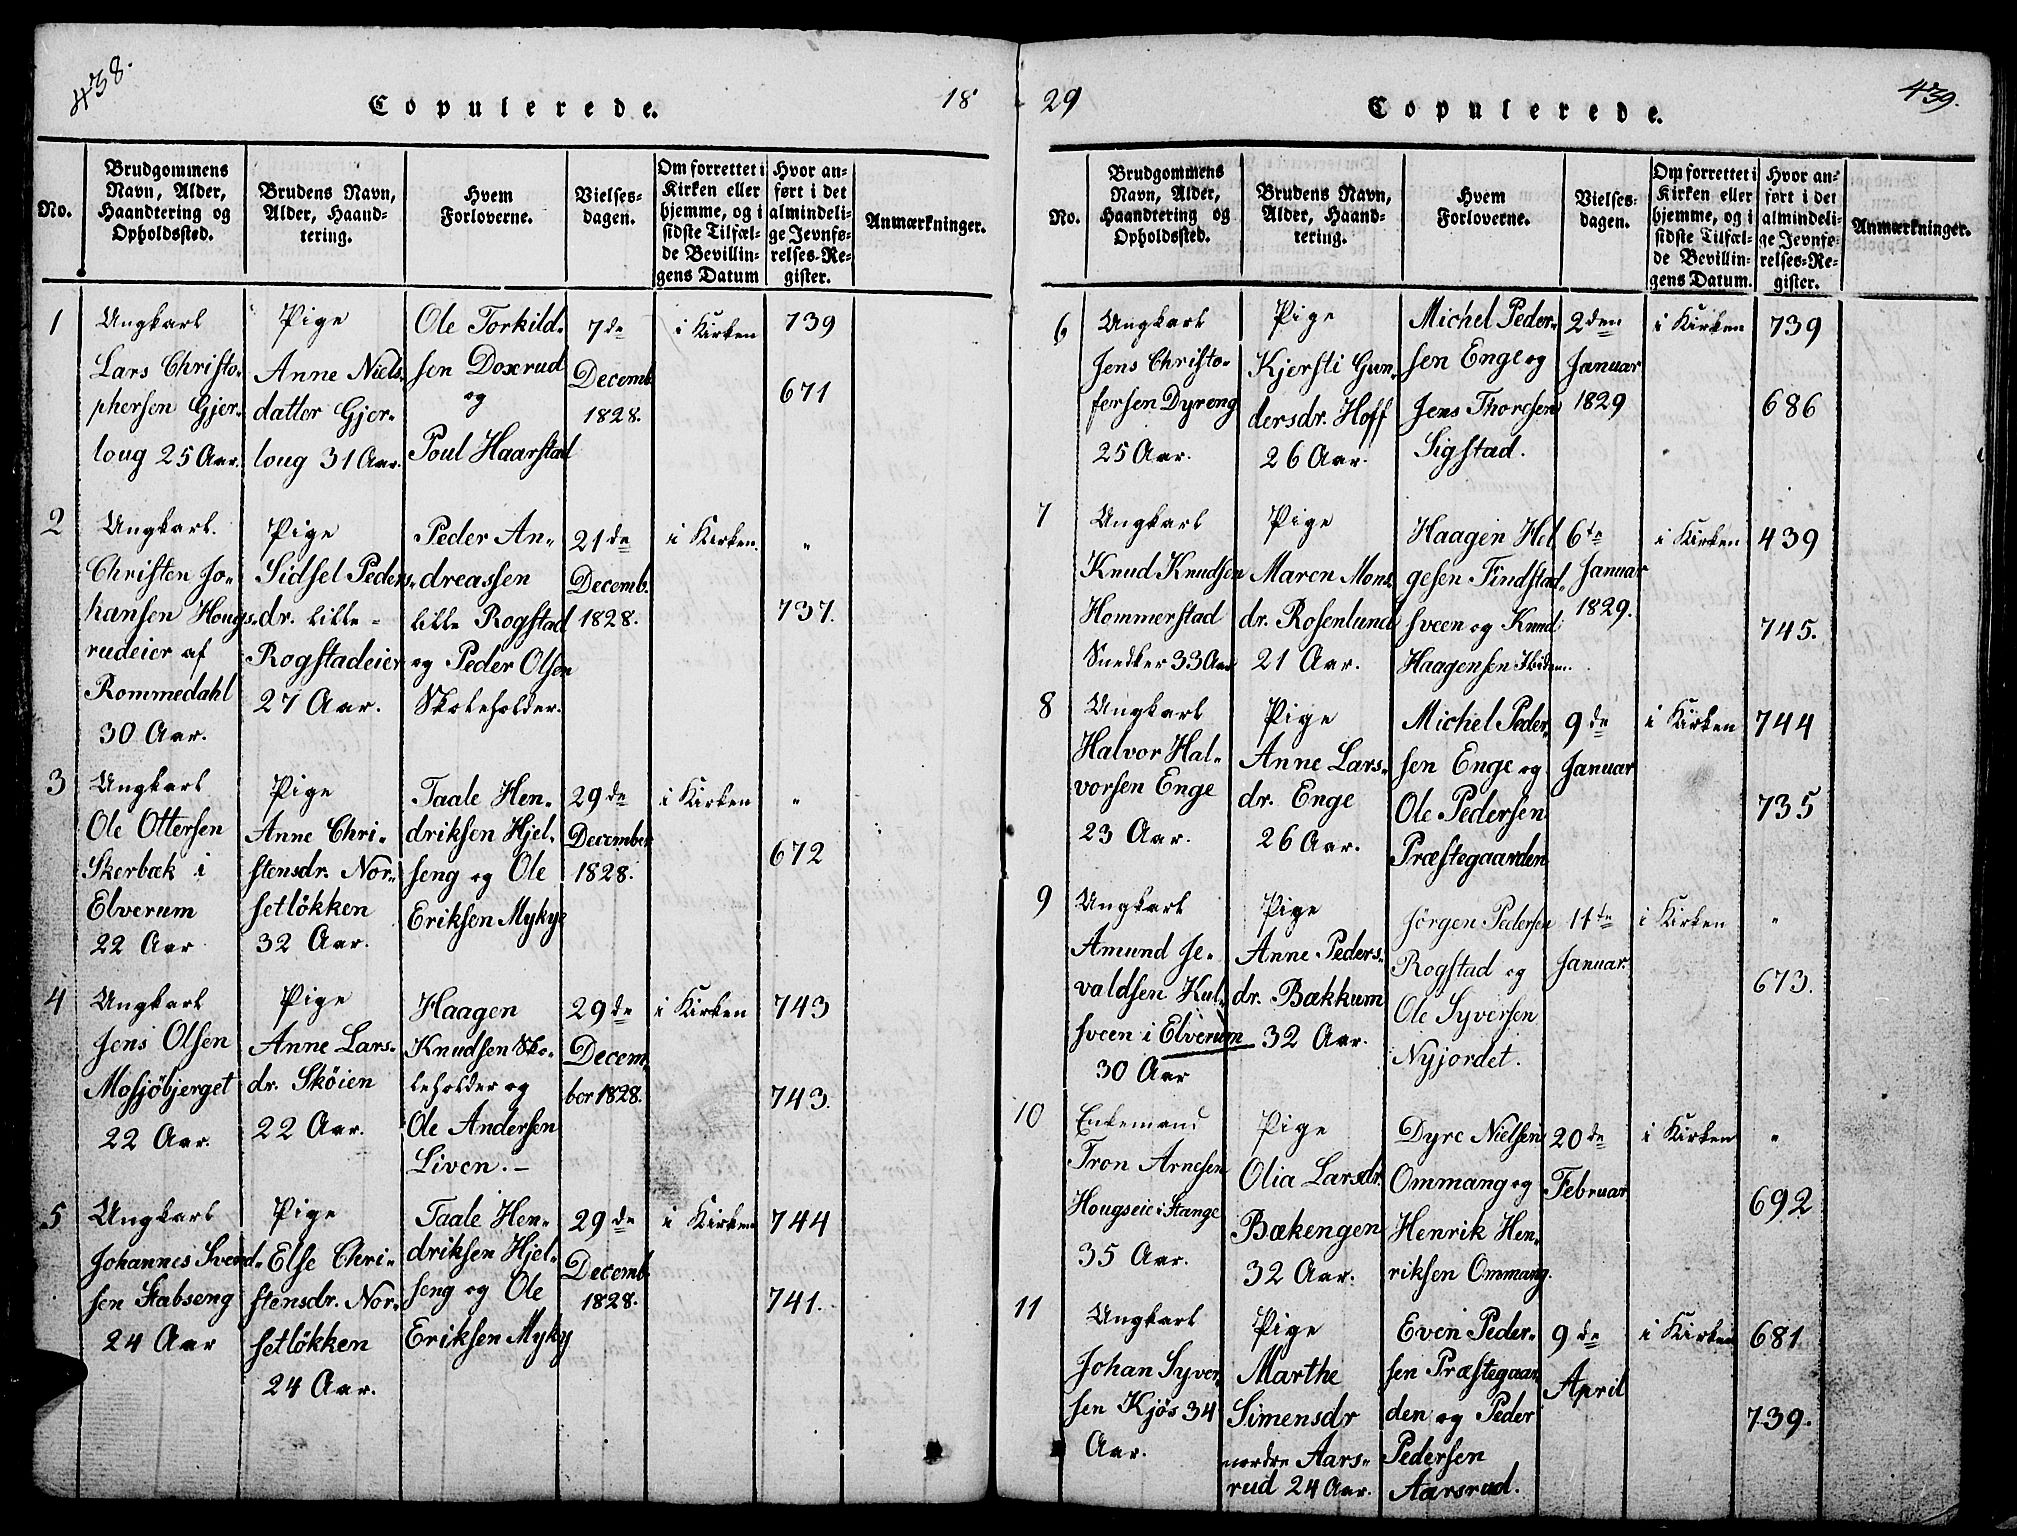 438.
Copulerede.
18
No.
Brudgommens
Navn, Alder,
Haandtering og
Opholdssted.
Brudens Navn,
Alder, Haand-
tering.
Hvem
Forloverne.
Vielses-
dagen.
Om forrettet i
Kirken eller
hjemme, og i
sidste Tilfæl-
de Bevillin-
gens Datum
Hvor an-
ført i det
almindeli-
ge Jevnfø-
relses-Re-
gister.
Anmærkninger.
1
Ungkarl
Lars Christo-
phersen Gjer-
loug 25 Aar.
Pige
Anne Niels-
datter Gjer-
loug 31 Aar.
Ole Torkild-
sen Doxrud
og
Poul Haarstad
7de
Decemb.
1828.
i Kirken
739
671
2
Ungkarl.
Christen Jo-
hansen Hougs-
rudeier af
Rommedahl
30 Aar.
Pige
Sidsel Peders-
dr. lille-
Rogstadeier
27 Aar.
Peder An-
dreassen
lille Rogstad
og Peder Olsen
Skoleholder.
21de
Decemb.
1828.
i Kirken.
"
737.
3
Ungkarl
Ole Ottersen
Skerbæk i
Elverum
22 Aar
Pige
Anne Chri-
stensdr. Nor-
setløkken
32 Aar.
Taale Hen-
driksen Hjel-
seng og Ole
Eriksen Mykye
29de
December
1828.
i Kirken
"
672
4
Ungkarl
Jens Olsen
Mosjöbjerget
22 Aar.
Pige
Anne Lars-
dr. Sköien
22 Aar.
Haagen
Knudsen Sko-
leholder og
Ole Andersen
Liven.-
29de
Decem-
ber 1828.
i Kirken
743
743.
5
Ungkarl
Johannes Svend-
sen Stabseng
24 Aar
Pige
Else Chri-
stensdr. Nor-
setløkken
24 Aar.
Taale Hen-
driksen Hjel-
seng og Ole
Eriksen Myky
29de
Decemb.
1828.
i Kirken
744
741.
29
Copulerede.
439.
No.
Brudgommens
Navn, Alder,
Haandtering og
Opholdssted.
Brudens Navn,
Alder, Haand-
tering.
Hvem
Forloverne.
Vielses-
dagen.
Om forrettet i
Kirken eller
hjemme, og i
sidste Tilfæl-
de Bevillin-
gens Datum.
Hvor an-
ført i det
almindeli-
ge Jevnfø-
relses-Re-
gister.
Anmærkninger.
6
Ungkarl
Jens Christo-
fersen Dyreng
25 Aar.
Pige
Kjersti Gun-
dersdr. Hoff
26 Aar.
Michel Peder-
sen Enge og
Jens Thoresen
Sigstad.
2den
Januar
1829
i Kirken
739
686
7
Ungkarl
Knud Knudsen
Hommerstad
Snedker 33 Aar
Pige
Maren Mons-
dr. Rosenlund
21 Aar.
Haagen Hel
gesen Findstad-
sveen og Knud
Haagensen Ibidem.
6te
Januar
1829.
i Kirken
439
745.
8
Ungkarl
Halvor Hal-
vorsen Enge
23 Aar.
Pige
Anne Lars-
dr. Enge
26 Aar.
Michel Peder-
sen Enge og
Ole Pedersen
Præstegaarden
9de
Januar
i Kirken
744
735
9
Ungkarl
Amund Je-
valdsen Kul-
sveen i Elverum
30 Aar
Pige
Anne Peders-
dr. Bækkum
32 Aar.
Jörgen Pedersen
Rogstad og
Ole Syversen
Nyjordet.
11te
Januar.
i Kirken
"
673.
10
Enkemand
Tron Arnesen
Hougseie i Stange
35 Aar.
Pige
Olia Larsdr.
Bækengen
32 Aar.
Dyre Nielsen
Ommang og
Henrik Hen-
riksen Ommang.
20de
Februar
i Kirken
"
692
11
Ungkarl
Johan Syver-
sen Kjös 34
Aar.
Pige
Marthe
Simensdr
nordre Aars-
rud 24 Aar.
Even Peder-
sen Præstegaar-
den og Peder
Pedersen
Aarsrud.
9de
April
i Kirken
681
739.